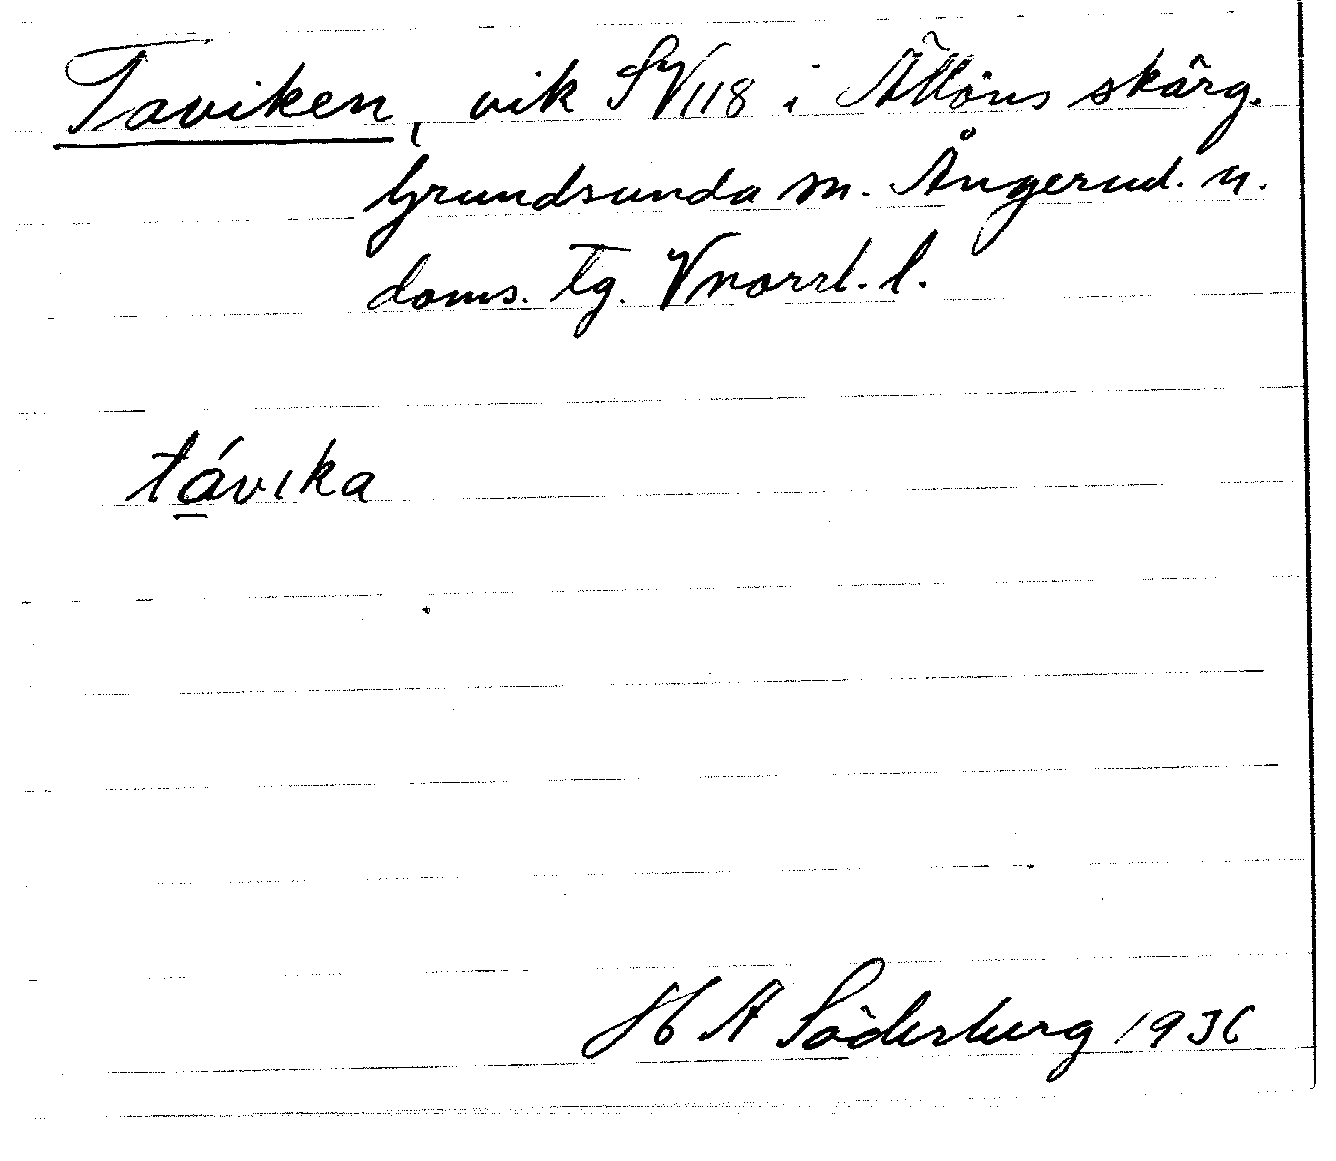 Taviken, vik SV118 i Ällöns skärg.
Grundsunda sn. Ångerml. n.
doms. Tg. Vnorrl. l.
távika
H A Söderberg 1936